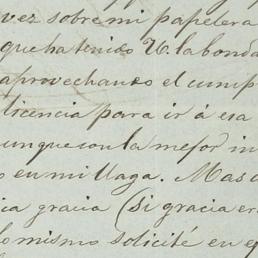 vez sobre mi papelera
que ha tenido V la bonda
aprovechando el cump
licencia para ir á esa
unque con la mejor in
en mi llaga. Mas
ia gracia (si gracia er
lo mismo solicité en e